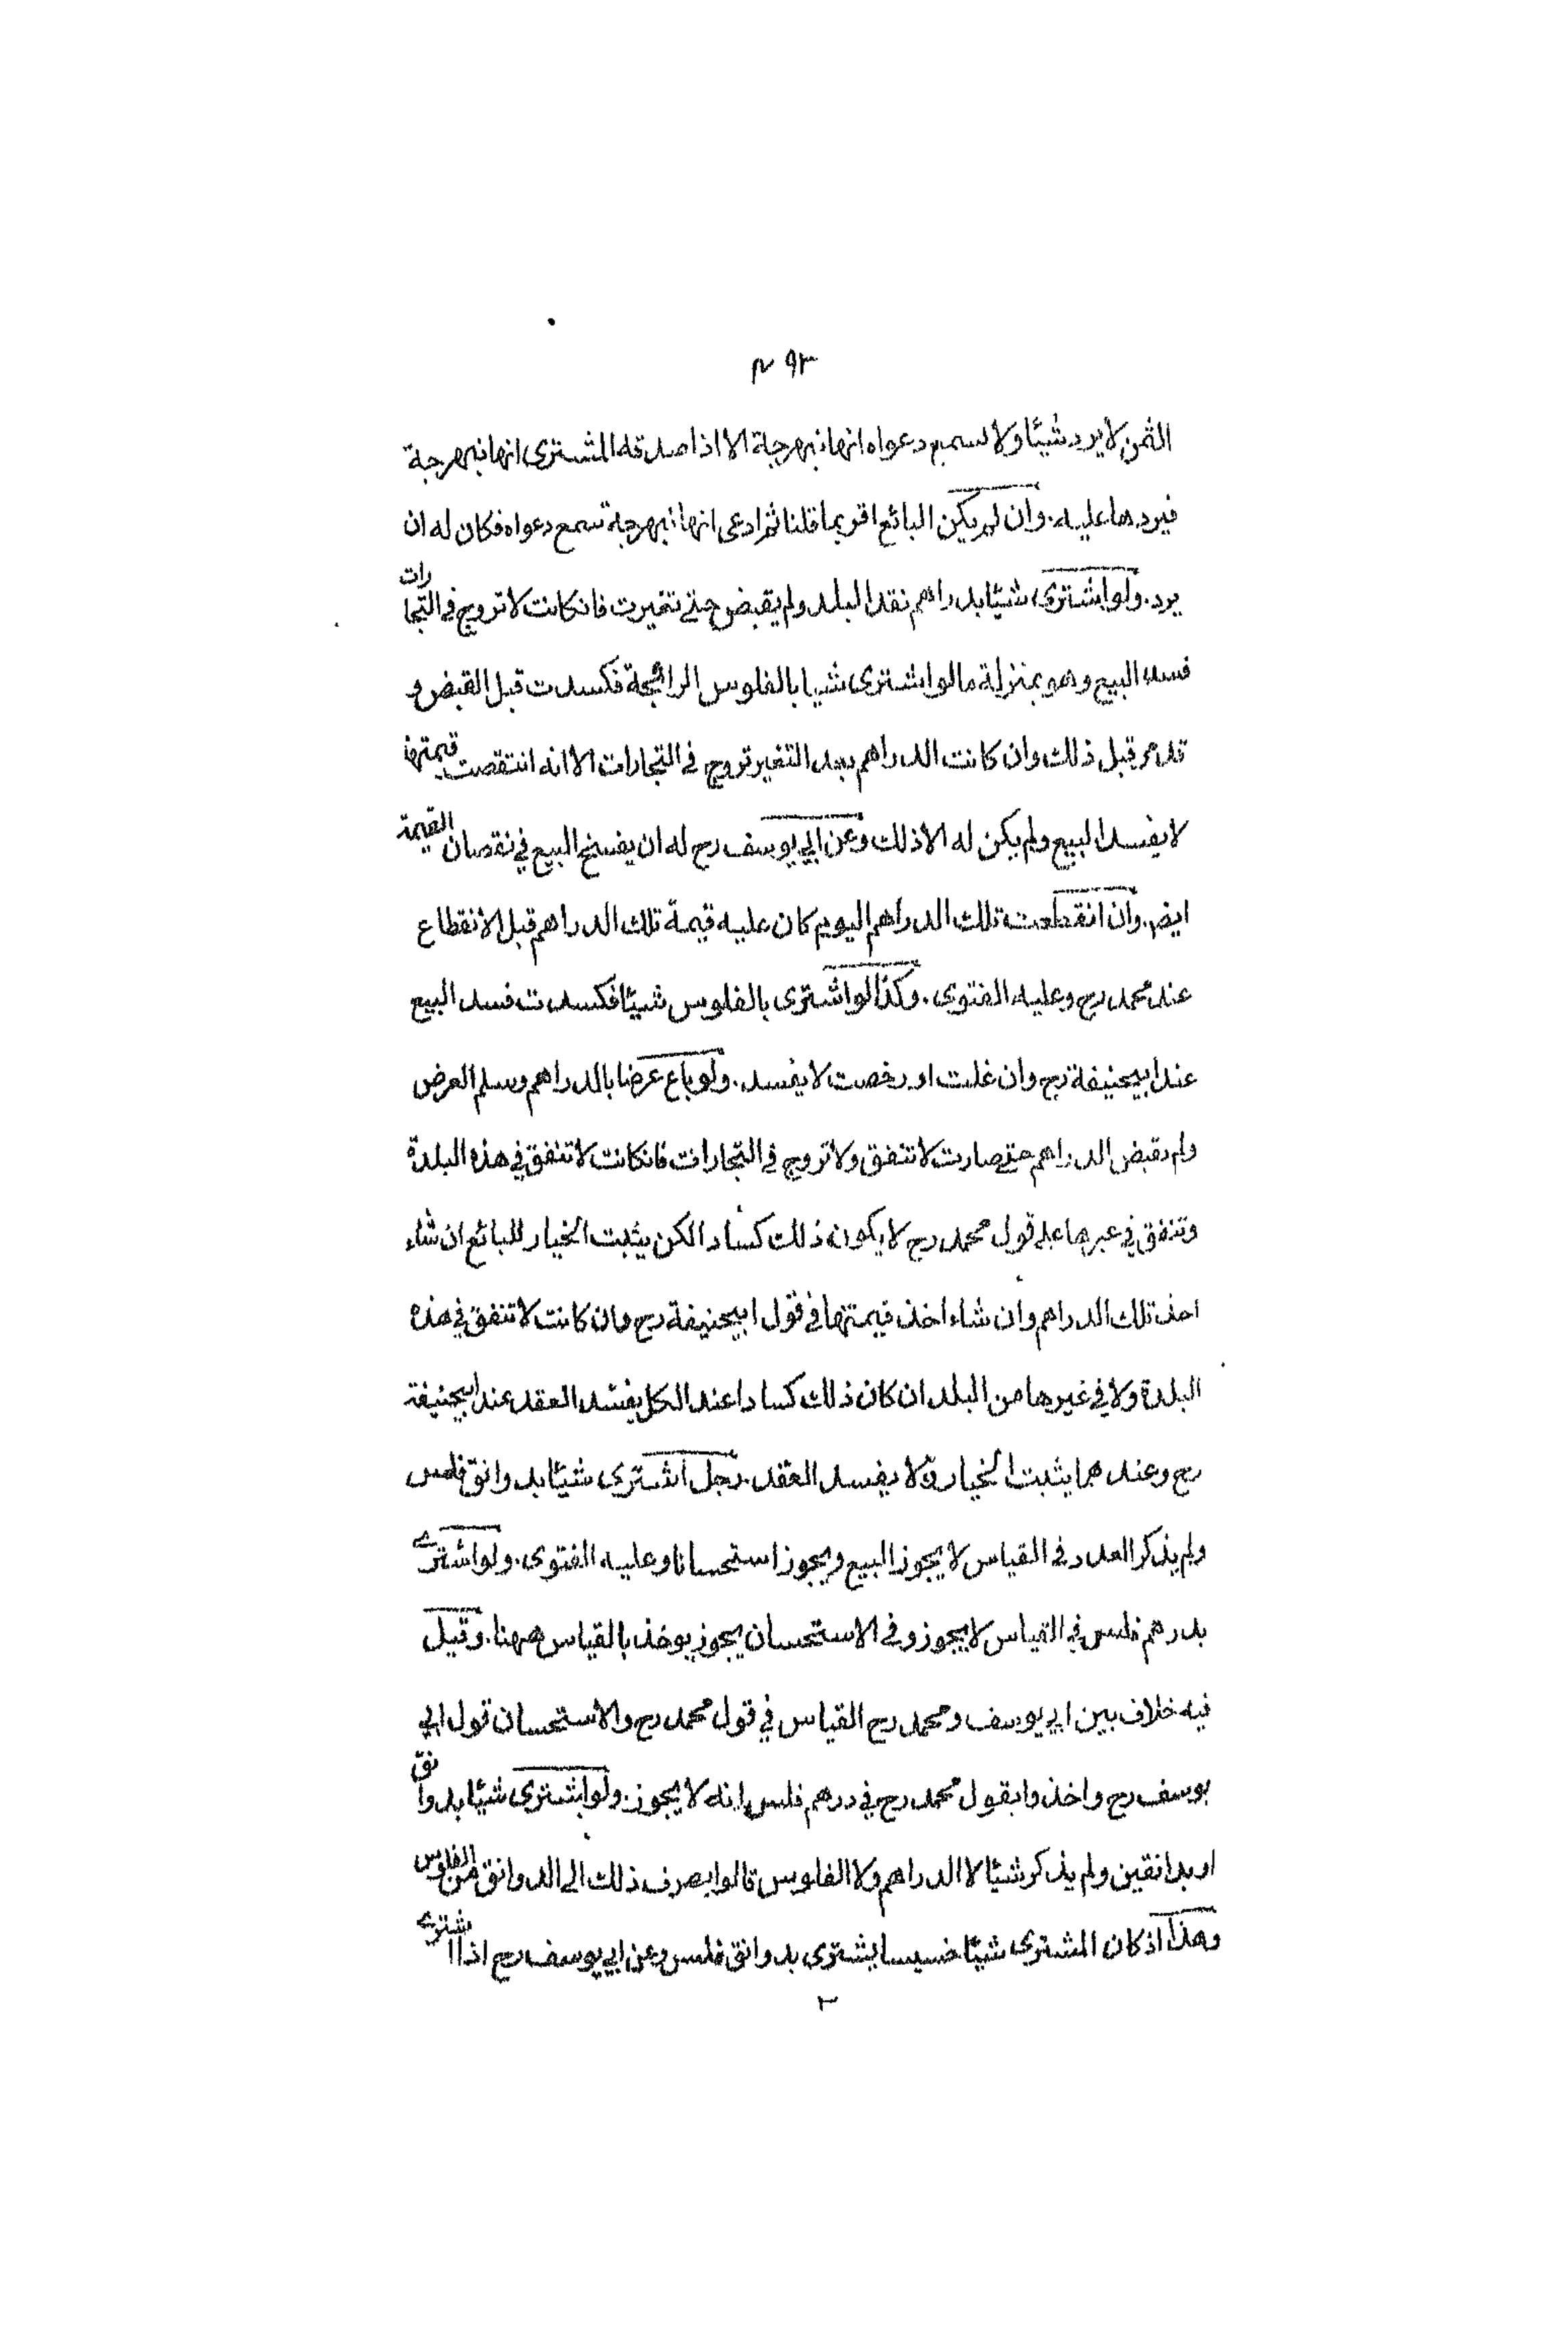 ٩٣ م
الثمن لا يرد شيئا ولا تسمع دعواه انها نبهرجة الا اذا صدقه المشترى انها نبهرجة
فيردها عليه. وان لم يكن البائع اقر بما قلنا ثم ادعى انها نبهرجة تسمع دعواه فكان له ان
يرد. ولو اشترى شيئا بدراهم نقد البلد ولم يقبض حتى تغيرت فانكانت لا تروج في التجارات
فسد البيع وهو بمنزلة ما لو اشترى شيا بالفلوس الرائجة فكسدت قبل القبض و
قد مر قبل ذلك وان كانت الدراهم بعد التغير تروج في التجارات الا انه انتقصت قيمتها
لا يفسد البيع ولم يكن له الا ذلك وعن ابي يوسف رح له ان يفسخ البيع في نقصان القيمة
ايض. وان انقطعت تلك الدراهم اليوم كان عليه قيمة تلك الدراهم قبل الانقطاع
عند محمد رح وعليه الفتوى. وكذا لو اشترى بالفلوس شيئا فكسدت فسد البيع
عند ابيحنيفة رح وان غلت او رخصت لا يفسد. ولو باع عرضا بالدراهم وسلم العرض
ولم يقبض الدراهم حتى صارت لا تنفق ولا تروج في التجارات فانكانت لا تنفق في هذه البلدة
وتنفق في غيرها على قول محمد رح لا يكون ذلك كسادا لكن يثبت الخيار للبائع ان شاء
اخذ تلك الدراهم وان شاء اخذ قيمتها في قول ابيحنيفة رح وان كانت لا تنفق في هذه
البلدة ولا في غيرها من البلدان كان ذلك كسادا عند الكل يفسد العقد عند ابيحنيفة
رح وعندهما يثبت الخيار ولا يفسد العقد. رجل اشترى شيئا بدوانق فلس
ولم يذكر العدد في القياس لا يجوز البيع ويجوز استحسانا وعليه الفتوى. ولو اشترى
بدرهم فلس في القياس لا يجوز وفي الاستحسان يجوز يوخذ بالقياس ههنا. وقيل
فيه خلاف بين ابي يوسف ومحمد رح القياس في قول محمد رح والاستحسان قول ابي
يوسف رح واخذوا بقول محمد رح في درهم فلس انه لا يجوز. ولو اشترى شيئا بدوانق
او بدانقين ولم يذكر شيئا لا الدراهم ولا الفلوس قالوا يصرف ذلك الى الدوانق من الفلوس
وهذا اذ كان المشترى شيئا خسيسا يشترى بدوانق فلس وعن ابي يوسف رح اذا اشترى